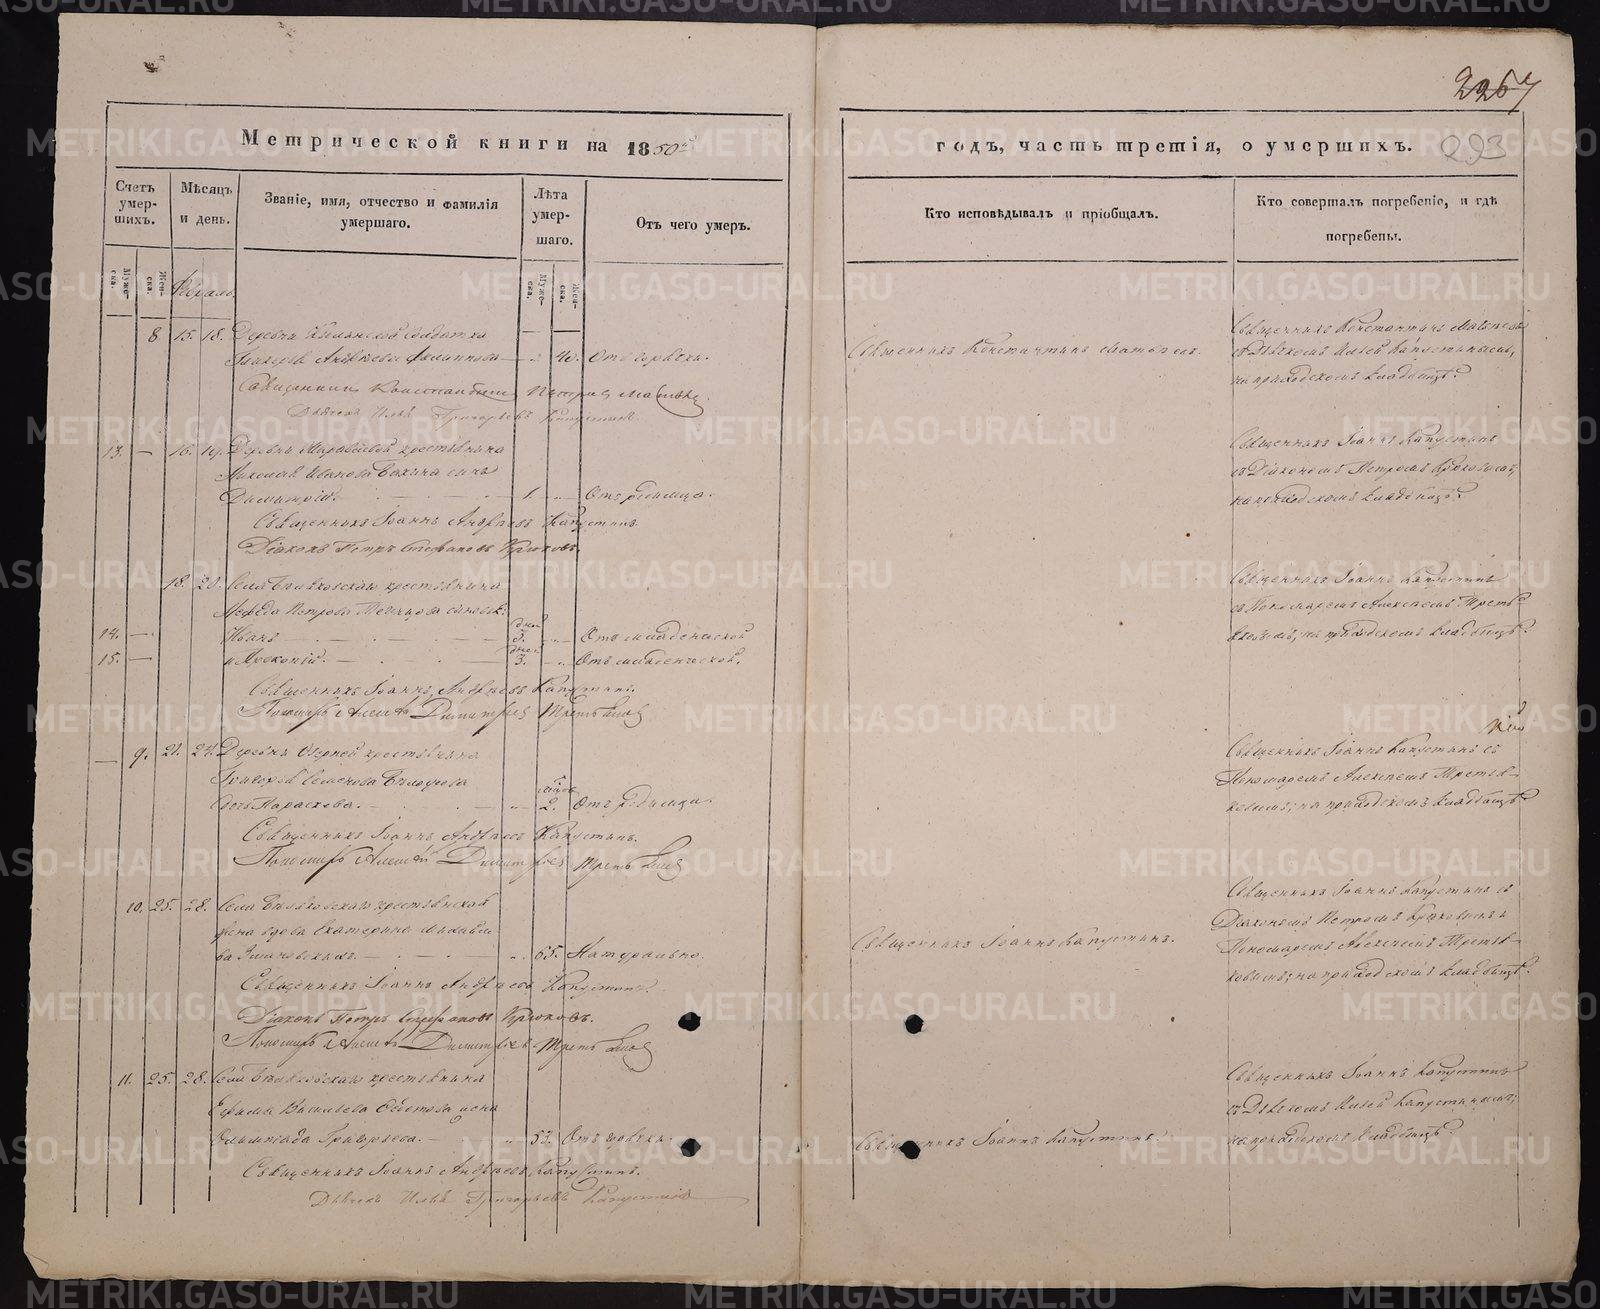 2267
293
Метрической книги на 1850й
годъ, часть третія, о умершихъ.
Счетъ умер-шихъ.
Мѣсяцъ и день.
Званіе, имя, отчество и фамилія умершаго.
Лѣта умер-шаго.
Отъ чего умеръ.
Кто исповѣдывалъ и пріобщалъ.
Кто совершалъ погребеніе, и гдѣ погребены.
Муже-ска.
Жен-ска.
Муже-ска.
Жен-ска.
8. 15. 18. Деревни солдатка
40. Отъ горячки.
Священникъ Константинъ Матвѣевъ.
Священникъ Константинъ Матвѣевъ
съ Дьячкомъ Ильей Капустинымъ,
на приходскомъ кладбищѣ.
Священникъ Константинъ Петровъ Матвѣевъ.
Дьячекъ Илья Григорьевъ Капустинъ.
13. — 16. 19. Деревни крестьянина
Николая Иванова сынъ
Димитрій. — 1. Отъ родимца.
Священникъ Іоаннъ Капустинъ
съ Діакономъ Петромъ Крюковымъ,
на приходскомъ кладбищѣ.
Священникъ Іоаннъ Андреевъ Капустинъ.
Діаконъ Петръ Стефановъ Крюковъ.
18. 20. Села крестьянина
Петрова сыновья:
14. — Иванъ — дней 3. Отъ младенческой
15. — и Прокопій. — дней 3. Отъ младенческой.
Священникъ Іоаннъ Капустинъ
съ Пономаремъ Алексѣемъ Треть-
яковымъ, на приходскомъ кладбищѣ.
Священникъ Іоаннъ Андреевъ Капустинъ.
Пономарь Алексѣй Димитріев Третьяков
— 9. 21. 24. Деревни Озерной крестьянина
Григорья Семенова
дочь Параскева. — 2. Отъ родимца.
Священникъ Іоаннъ Капустинъ съ
Пономаремъ Алексѣемъ Третья-
ковымъ, на приходскомъ кладбищѣ.
Священникъ Іоаннъ Андреевъ Капустинъ.
Пономарь Алексѣй Димитріев Третьяков
10. 25. 28. Села крестьянская
жена вдова Екатерина
65. Натурально.
Священникъ Іоаннъ Капустинъ.
Священникъ Іоаннъ Капустинъ съ
Діакономъ Петромъ Крюковымъ и
Пономаремъ Алексѣемъ Третья-
ковымъ, на приходскомъ кладбищѣ.
Священникъ Іоаннъ Андреевъ Капустинъ.
Діаконъ Петръ Стефановъ Крюковъ.
Пономарь Алексѣй Димитріев Третьяков
11. 25. 28. Села крестьянина
Ефима Васильева жена
Олимпіада Григорьева. — 53. Отъ горячки.
Священникъ Іоаннъ Капустинъ.
Священникъ Іоаннъ Капустинъ
съ Дьячкомъ Ильей Капустинымъ,
на приходскомъ кладбищѣ.
Священникъ Іоаннъ Андреевъ Капустинъ.
Дьячекъ Илья Григорьевъ Капустинъ
METRIKI.GASO-URAL.RU